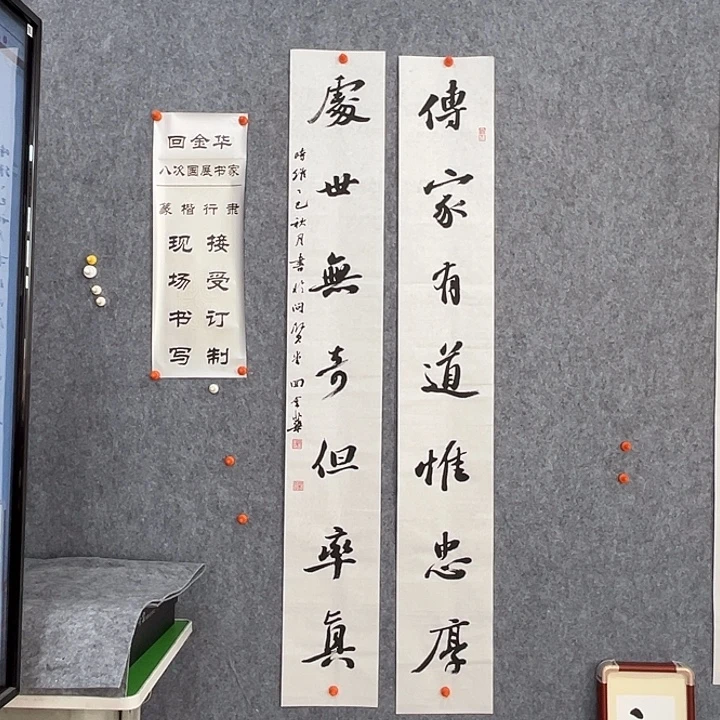 傳家有道惟忠厚
處世無奇但率真
時維乙巳秋月書於問賢堂回金華
回金华
八次国展书家
篆楷行隶
接受订制
现场书写